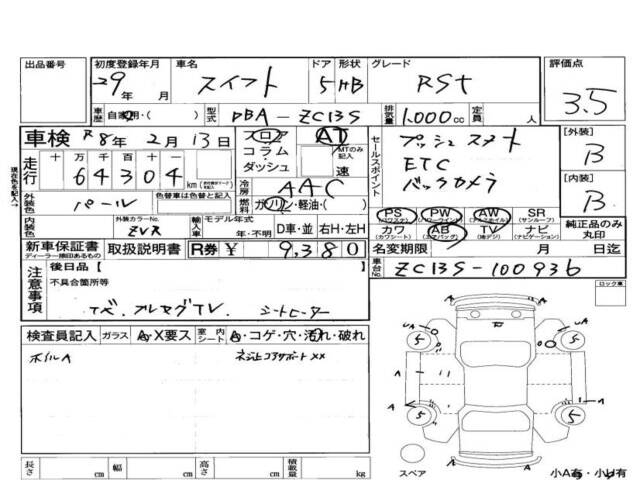 出品番号 初度登録年月 車名 ドア 形状 グレード 評価点
29年 月 スイフト 5 HB RSt 3.5
車歴 自家用・( ) 型式 DBA-ZC13S 排気量 1.000cc 定員 人
車検 R8年2月13日 フロア AT セールスポイント プッシュスタート [外装]
コラム MTのみ記入 ETC B
走行 十 万 千 百 十 一 ダッシュ 速 バックカメラ
64304 km 冷房 AAC [内装]
外装色 パール 色替車は色替と記入 燃料 ガソリン・軽油・( ) PS PW AW SR B
(パワステ) (パワーウィンド) (アルミホイル) (サンルーフ)
内装色 外装カラーNo. ZVR 輸入車 モデル年式 年・不明 D車・並 右H・左H カワ AB TV ナビ 純正品のみ丸印
(カワシート) (エアバッグ) (地デジ) (ナビゲーション)
新車保証書 取扱説明書 R券 ¥ 9,380 名変期限 月 日迄
ディーラー捺印あるもの
現在色を記入→
注意事項 後日品【 】 車台No. ZC13S-100936
不具合箇所等 ロック車
ナビ.フルセグTV. シートヒーター
検査員記入 ガラス A・X要ス 室内シート A・コゲ・穴・汚れ・破れ
ホイルA ネジ上コアサポートXX
UA A
5 5
A A
A
5 5
スペア
長さ cm 幅 cm 高さ cm 積載量 kg 小A有・小U有